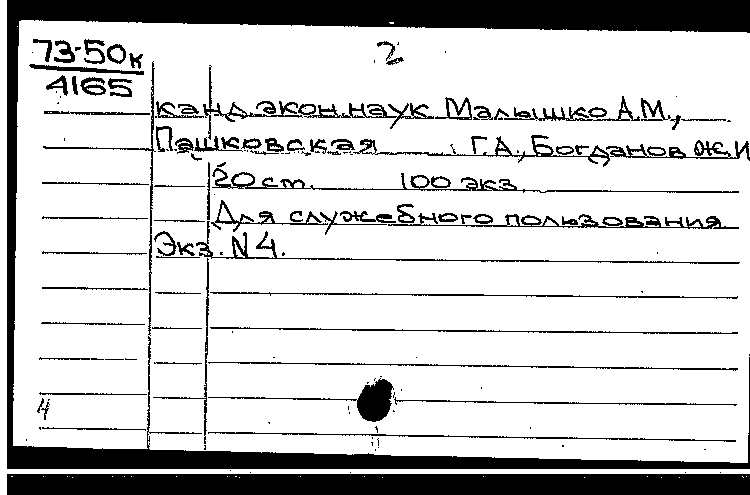 73-50к
4165
2
канд.экон.наук Малышко А.М.,
Пашковская Г.А., Богданов Ж.И
20 ст. 100 экз.
Для служебного пользования
Экз. N 4.
4